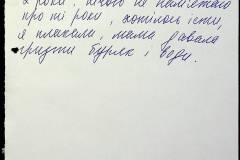 2 роки, нічого не пам'ятаю
про ті роки, хотілось їсти,
я плакали, мама давала
гризти буряк і води.